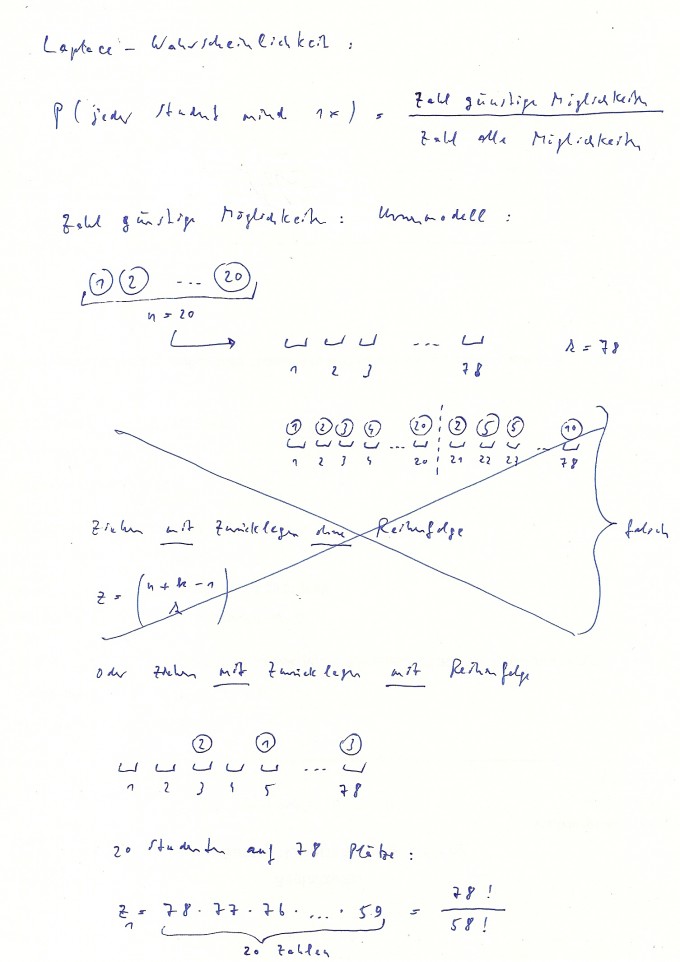 Laplace - Wahrscheinlichkeit :
P ( jeder Student mind 1x ) = Zahl günstige Möglichkeiten / Zahl alle Möglichkeiten
Zahl günstige Möglichkeiten : Urnenmodell :
1 2 ... 20
n = 20
... k = 78
1 2 3 78
1 2 3 4 20 2 5 5 10
1 2 3 4 ... 20 21 22 23 ... 78
Ziehen mit Zurücklegen ohne Reihenfolge
falsch
z = ( n + k - 1 / k )
oder ziehen mit Zurücklegen mit Reihenfolge
2 1 3
...
1 2 3 4 5 78
20 Studenten auf 78 Plätze :
z1 = 78 · 77 · 76 · ... · 59 = 78 ! / 58 !
20 Zahlen